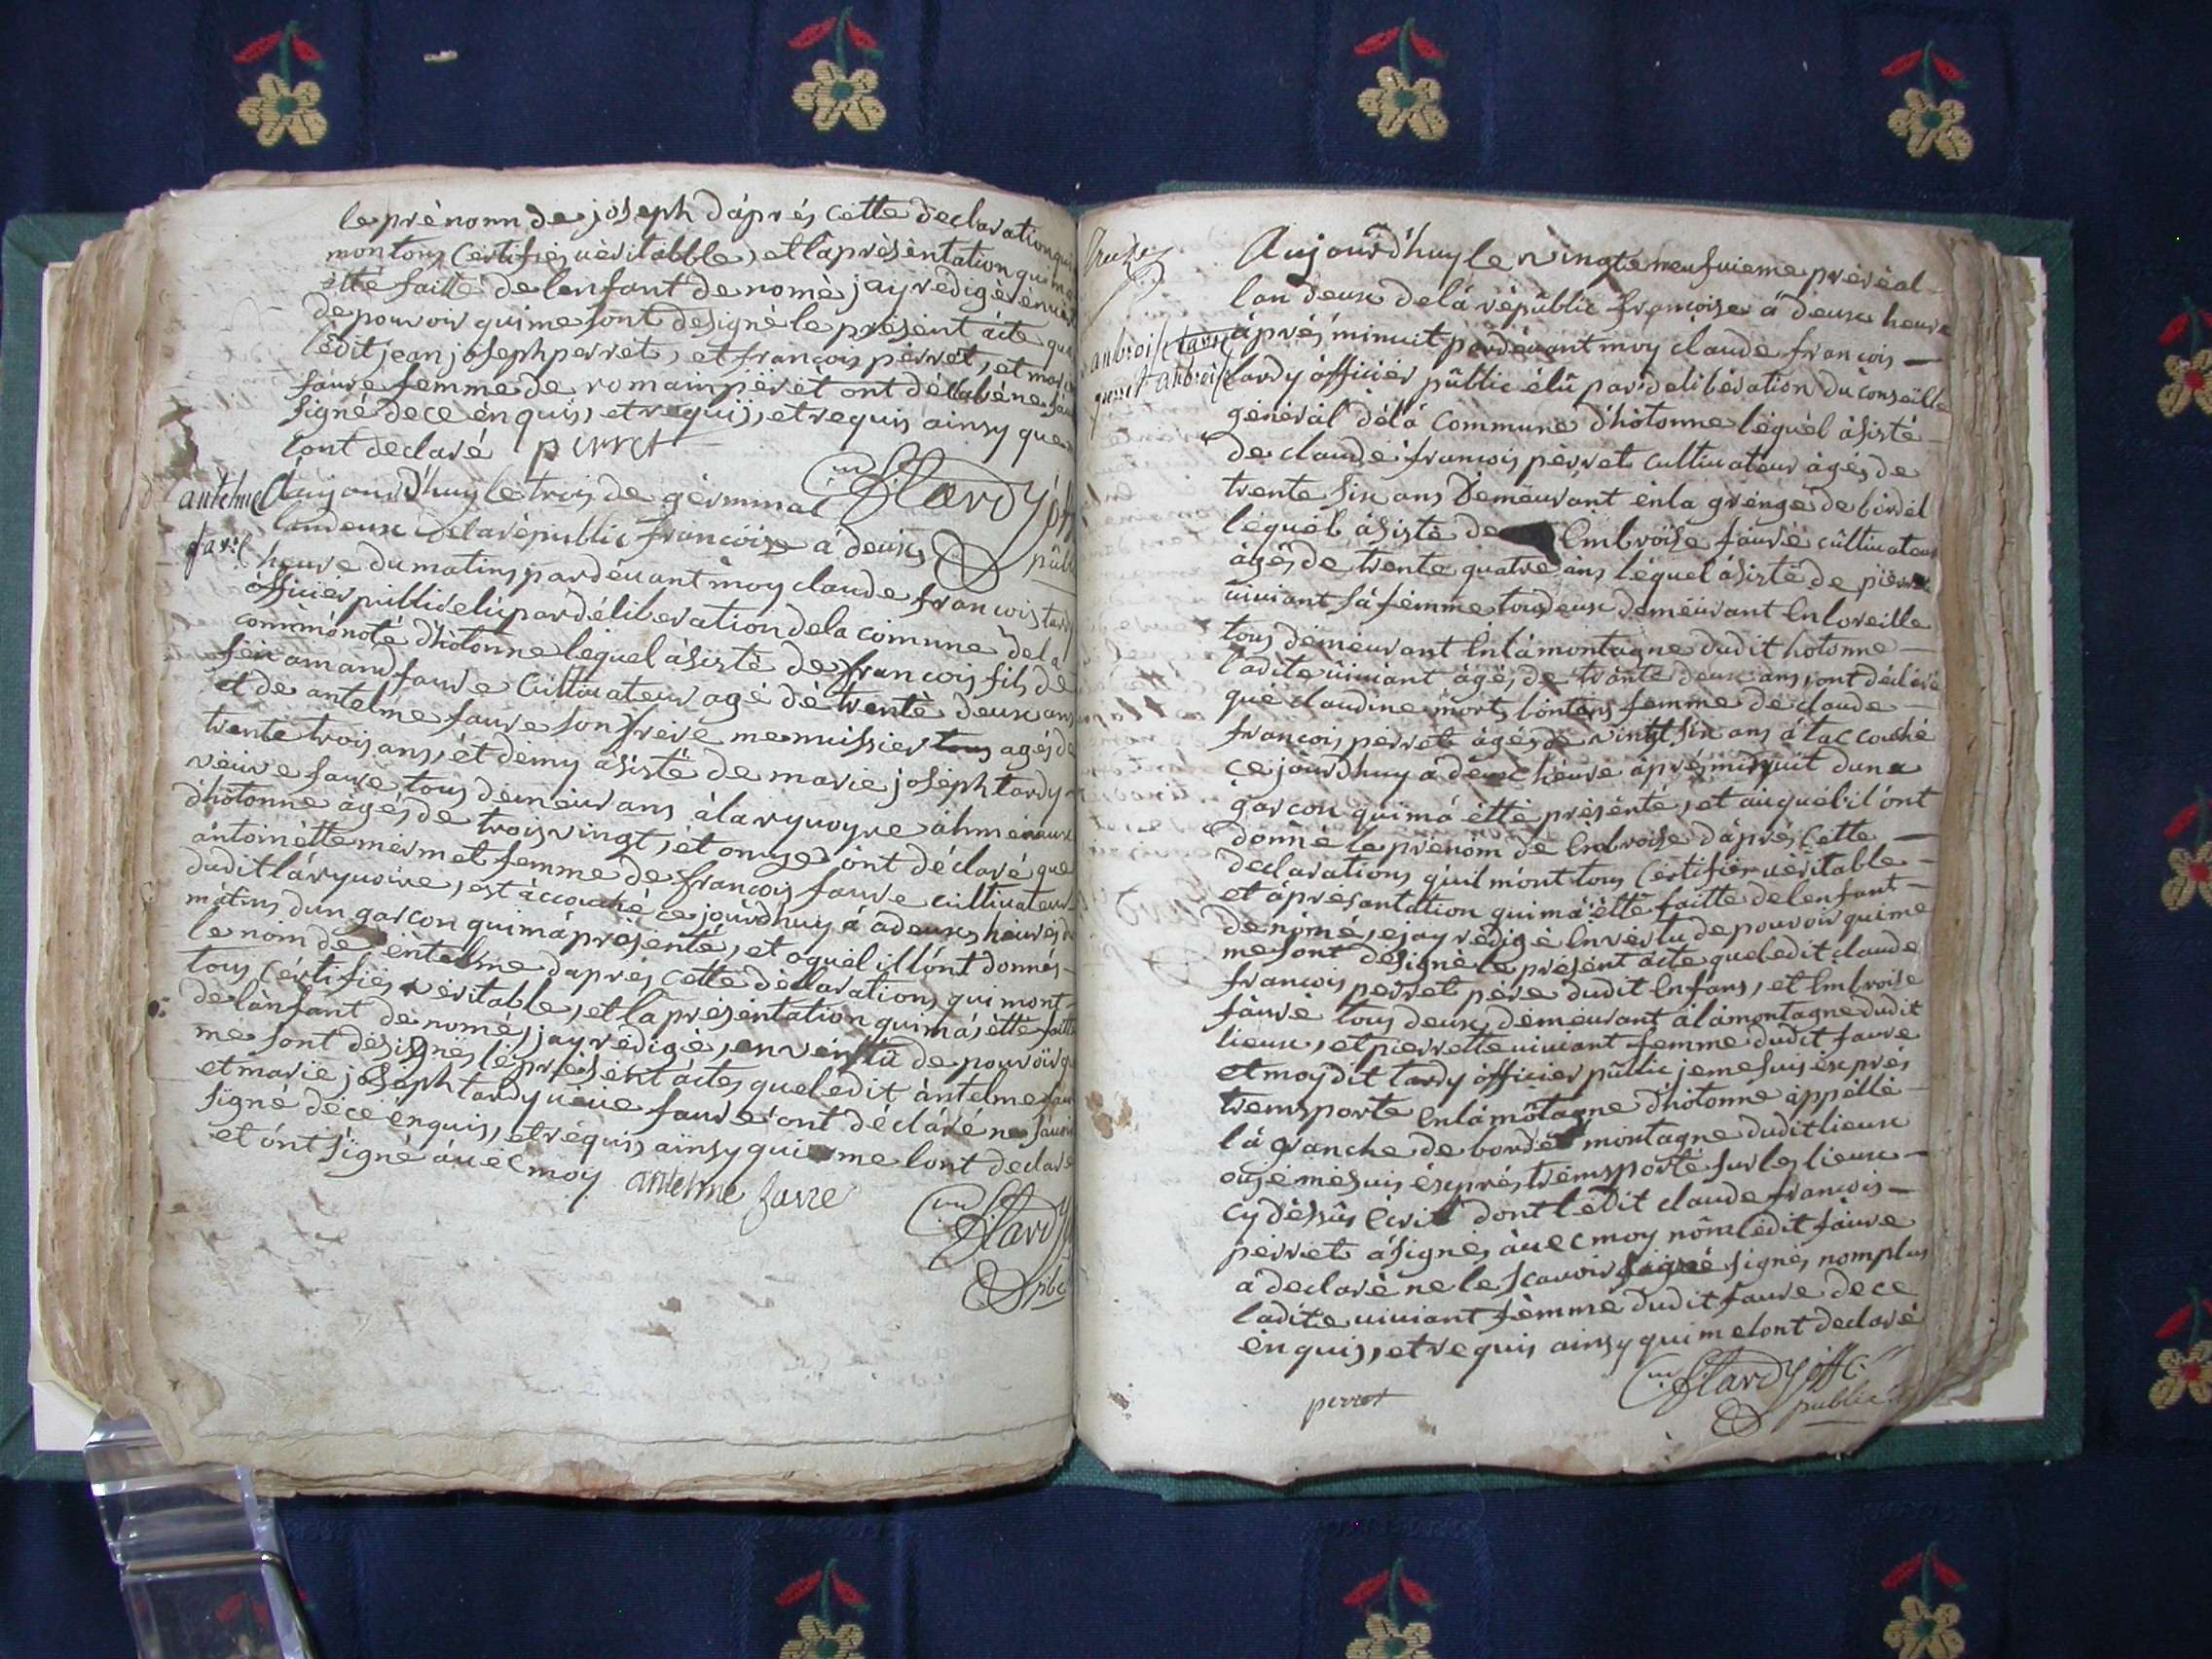 le prénom de joseph d'âprés cette declaration qui
montous certifies vèritabble, et la présèntation qui ma
été faitte de lenfant de nomè jay rédigé
de pouvoir qui me sont designé le présent âcte que
lèdit jean joseph perret, et françois pèrret, et
faure femme de romain pèrèt ont déclaré ne
signé de ce enquis, et requis, et requis ainsy que
lont declaré perret
antelme
favre
âujourd'huy le trois de gérminal
lan deux de la républic francoise a deux
heure du matins pardévant moy claude francois
officier public elu par délibèration de la commune de la
commonoté d'hotonne léquel àsisté de francois fils de
feu amand faure cultivateur agé dé trentè deux ans
et de antelme faure son frére menuisier tous agés de
trente trois ans, ét demy asistè de marie joséph tardy
véuve faure tous demeurans à la ryvoyre
d'hotonne agés de trois vingt, ét onze ont déclaré que
antoinètte mérmet femme de françois faure cultivateur
dudit lâryvoire, est àccouché ce jourd'huy à a deux heures
mâtins dun garcon qui mâ présènté, et oquel il lónt donnés
le nom de èntelme daprès cette déclarations qui mont
tous cértifiés véritable, et la présentation qui mâ étté faitte
de lànfant de nomé, jay rédigé, en vértu de pouvoir
me sont désignés lé présent âctes quel edit àntelme
et marie joséph tardy véuve faure ont déclaré ne savoir
signé déce énquis, et réquis ainsy qui me lont declaré
et ónt signé àvéc moy antelme favre
Cm f Tardy
Aujourd'huy le vingte neufuieme prèréal
lan deux delâ républic françoise â deux heure
âprés minuit pardévant moy claude francois
ambroise
tardy âfficiér public élû par delibération du conseille
général délâ commune d'hotonne léquél àsisté
de claude françois pèrret cultivateur âgés de
trente six ans demeurant én la grénge de bordél
léquél àsisté de Embroise fáuré cultivateur
âgés de trente quatre âns léquel àsisté de pierrette
viviant sâ fémme tous deux deméurant En loreille
tous déméurant En lâ montagne dudit hotonne
ladite viviant âgés de trânte deux ans, ont déclaré
qué claudine mort bontems femme dé claude
françois perret âgés de vingt six ans â taccouché
ce jourdhuy a deux héure âprés minuit duna
garçon qui mâ étté présénté, et auquél il ónt
donné le prénom de Embroise d'âprés cette
declarations qu'il mont tous certifier véritable
et àprésantation qui mâ étté faitte delenfant
dénômé, ejay rédigé En vértu de pouvoir qui me
me sont désigné le présént âcte quel edit claude
françois perret pére dudit Enfans, et Embroise
faûré tous deux deméurant àlâmontagne dudit
lieux, et pierrette viviant femme dudit faure
et moydit tardy òfficier public je me suis éxprés
trensporte En lâmôtagne d'hotonne âppéllé
lâ granche de bordet montagne dudit lieux
ouje mésuis éxprés trénsporté sur les lieux
cy déssûs écrit dont lédit claude francois
pérret âsignés àvec moy nôm lédit fâure
â declaré ne le scavoir signé signés nom plus
ladite viviant fémme dudit faure dece
én quis, et requis ainsy qui me lont declaré
perret
Cm f Tardy offc.
public